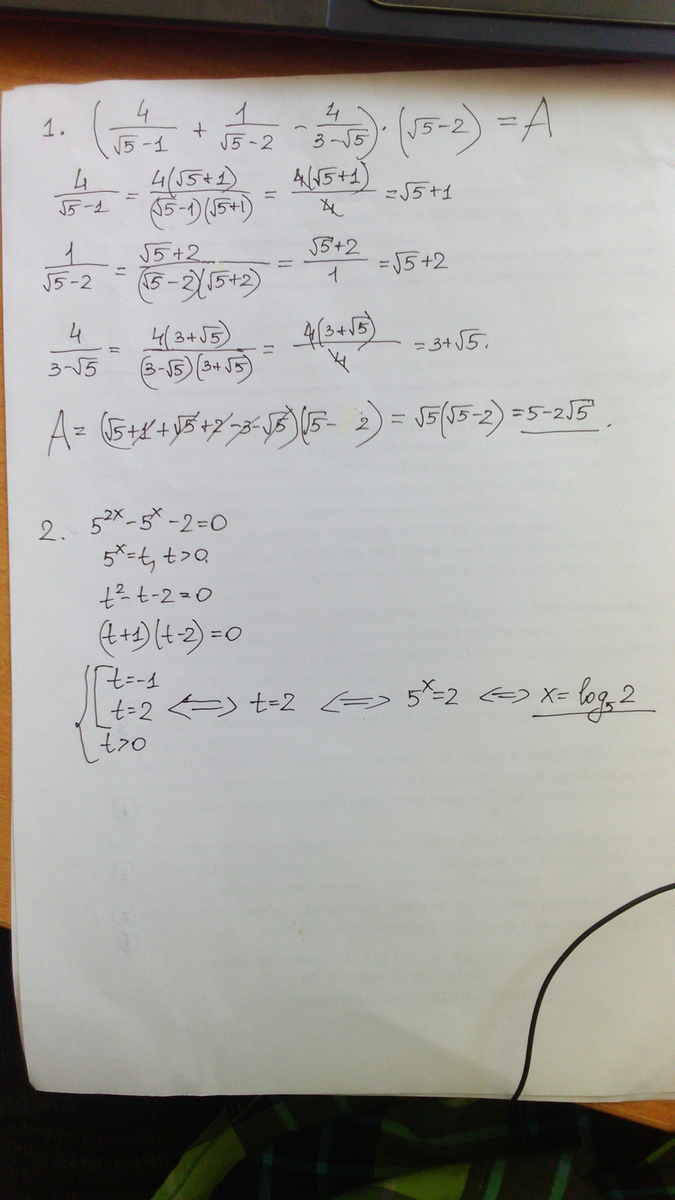 1. (4/(√5-1) + 1/(√5-2) - 4/(3-√5)) · (√5-2) = A
4/(√5-1) = 4(√5+1)/((√5-1)(√5+1)) = 4(√5+1)/4 = √5+1
1/(√5-2) = (√5+2)/((√5-2)(√5+2)) = (√5+2)/1 = √5+2
4/(3-√5) = 4(3+√5)/((3-√5)(3+√5)) = 4(3+√5)/4 = 3+√5.
A = (√5+1+√5+2-3-√5)(√5-2) = √5(√5-2) = 5-2√5.
2. 5^{2x} - 5^x - 2 = 0
5^x = t, t>0.
t² - t - 2 = 0
(t+1)(t-2) = 0
{ [ t=-1
t=2 <=> t=2 <=> 5^x=2 <=> x=log₅2
t>0